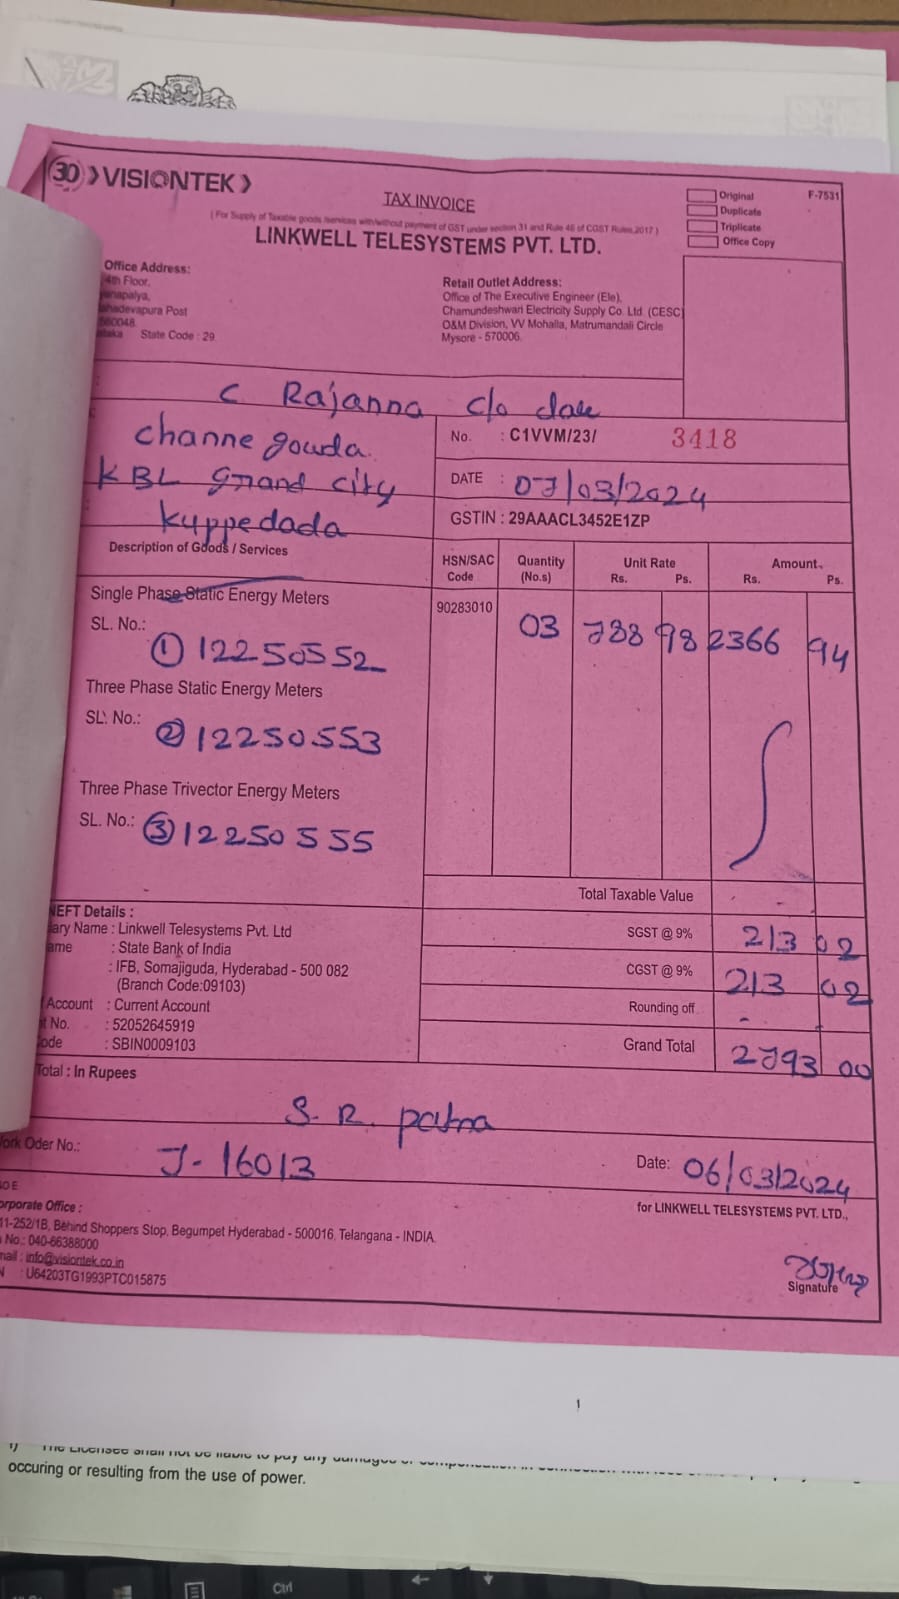 30 VISIONTEK
TAX INVOICE
( For Supply of Taxable goods /services with/without payment of GST under section 31 and Rule 46 of CGST Rules,2017 )
LINKWELL TELESYSTEMS PVT. LTD.
Original
Duplicate
Triplicate
Office Copy
F-7531
Office Address:
4th Floor,
Post
560048.
State Code : 29
Retail Outlet Address:
Office of The Executive Engineer (Ele),
Chamundeshwari Electricity Supply Co. Ltd. (CESC)
O&M Division, VV Mohalla, Matrumandali Circle
Mysore - 570006.
C Rajanna c/o
channe gouda.
KBL Grand city
Kuppedada
No. : C1VVM/23/ 3418
DATE : 07/03/2024
GSTIN : 29AAACL3452E1ZP
Description of Goods / Services
HSN/SAC Code
Quantity (No.s)
Unit Rate Rs. Ps.
Amount Rs. Ps.
Single Phase Static Energy Meters
90283010 03 788 98 2366 94
SL. No.: ① 12250552
Three Phase Static Energy Meters
SL. No.: ② 12250553
Three Phase Trivector Energy Meters
SL. No.: ③ 12250555
Total Taxable Value - -
SGST @ 9% 213 02
CGST @ 9% 213 02
Rounding off -
Grand Total 2793 00
NEFT Details :
Name : Linkwell Telesystems Pvt. Ltd
: State Bank of India
: IFB, Somajiguda, Hyderabad - 500 082
(Branch Code:09103)
Account : Current Account
No. : 52052645919
: SBIN0009103
Total : In Rupees
S. R. patna
Oder No.: J-16013
Date: 06/03/2024
Office :
11-252/1B, Behind Shoppers Stop, Begumpet Hyderabad - 500016, Telangana - INDIA.
No.: 040-66388000
: info@visiontek.co.in
: U64203TG1993PTC015875
for LINKWELL TELESYSTEMS PVT. LTD.,
Signature
1
occuring or resulting from the use of power.
Ctrl